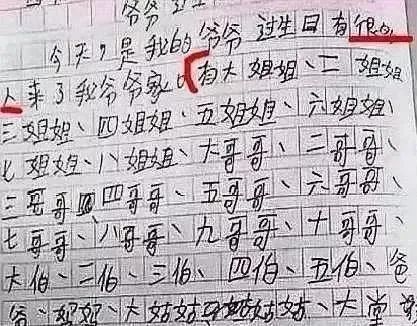 爷爷过生
今天,是我的爷爷过生日有很多
人来了我爷爷家。有大姐姐、二姐姐、
三姐姐、四姐姐、五姐姐、六姐姐、
七姐姐、八姐姐、大哥哥、二哥哥、
三哥哥、四哥哥、五哥哥、六哥哥、
七哥哥、八哥哥、九哥哥、十哥哥、
大伯、二伯、三伯、四伯、五伯、爸
爸、妈妈、大姑姑、姑姑、大堂